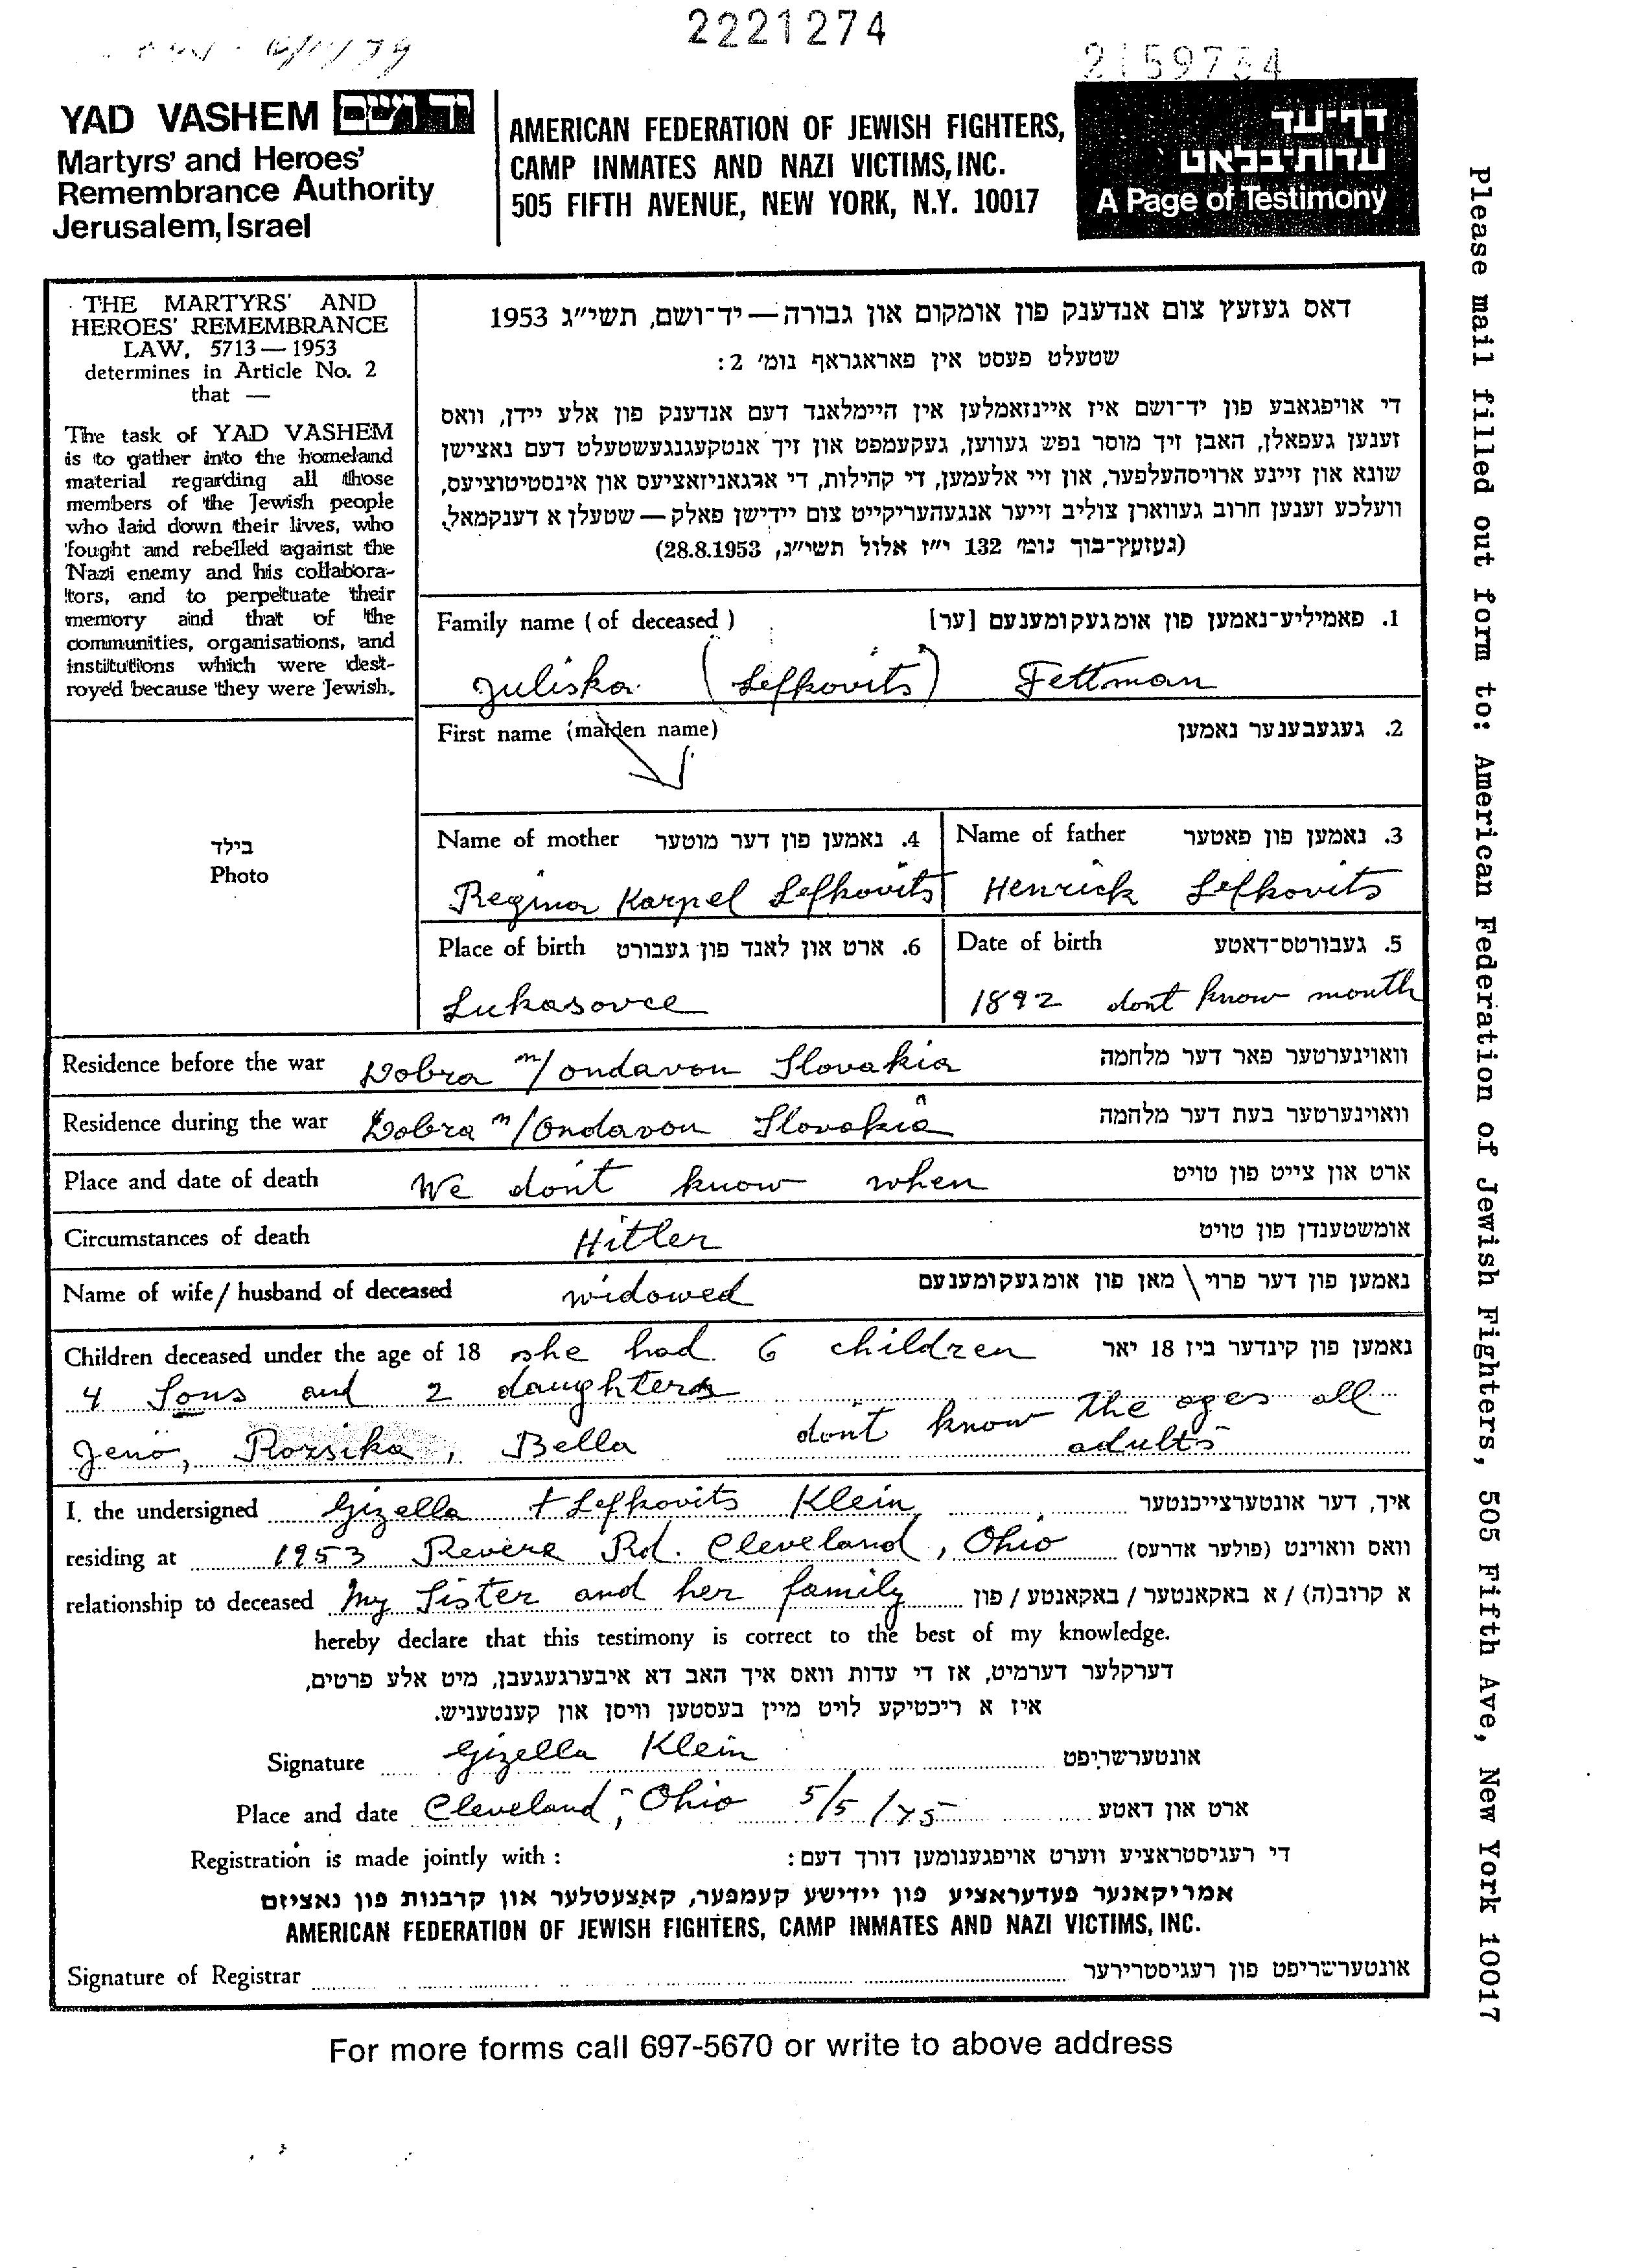 2221274
2159734
YAD VASHEM יד ושם
Martyrs' and Heroes'
Remembrance Authority
Jerusalem, Israel
AMERICAN FEDERATION OF JEWISH FIGHTERS,
CAMP INMATES AND NAZI VICTIMS, INC.
505 FIFTH AVENUE, NEW YORK, N.Y. 10017
דף־עד
עדות־בלאט
A Page of Testimony
THE MARTYRS' AND
HEROES' REMEMBRANCE
LAW, 5713—1953
determines in Article No. 2
that —
The task of YAD VASHEM
is to gather into the homeland
material regarding all those
members of the Jewish people
who laid down their lives, who
fought and rebelled against the
Nazi enemy and his collabora-
tors, and to perpetuate their
memory and that of the
communities, organisations, and
institutions which were dest-
royed because they were Jewish.
דאס געזעץ צום אנדענק פון אומקום און גבורה — יד־ושם, תשי״ג 1953
שטעלט פעסט אין פאראגראף נומ׳ 2:
די אויפגאבע פון יד־ושם איז איינזאמלען אין היימלאנד דעם אנדענק פון אלע יידן, וואס
זענען געפאלן, האבן זיך מוסר נפש געווען, געקעמפט און זיך אנטקעגנגעשטעלט דעם נאצישן
שונא און זיינע ארויסהעלפער, און זיי אלעמען, די קהילות, די ארגאניזאציעס און אינסטיטוציעס,
וועלכע זענען חרוב געווארן צוליב זייער אנגעהעריקייט צום יידישן פאלק — שטעלן א דענקמאל.
(געזעץ־בוך נומ׳ 132 י״ז אלול תשי״ג, 28.8.1953)
Family name (of deceased) 1. פאמיליע־נאמען פון אומגעקומענעם [ער]
Juliska (Lefkovits) Fettman
First name (maiden name) 2. געגעבענער נאמען
Photo בילד
Name of mother 4. נאמען פון דער מוטער
Regina Karpel Lefkovits
Name of father 3. נאמען פון פאטער
Henrick Lefkovits
Place of birth 6. ארט און לאנד פון געבורט
Lukasovce
Date of birth 5. געבורטס־דאטע
1892 dont know month
Residence before the war Dobra n/ondavon Slovakia וואוינערטער פאר דער מלחמה
Residence during the war Dobra n/Ondavon Slovakia וואוינערטער בעת דער מלחמה
Place and date of death We dont know when ארט און צייט פון טויט
Circumstances of death Hitler אומשטענדן פון טויט
Name of wife / husband of deceased widowed נאמען פון דער פרוי \ מאן פון אומגעקומענעם
Children deceased under the age of 18 she had 6 children נאמען פון קינדער ביז 18 יאר
4 Sons and 2 daughters
Jenö, Rozsika, Bella dont know the ages all
adults
I, the undersigned Gizella Lefkovits Klein איך, דער אונטערצייכנטער
residing at 1953 Revere Rd. Cleveland, Ohio וואס וואוינט (פולער אדרעס)
relationship to deceased My Sister and her family א קרוב(ה) / א באקאנטער / באקאנטע / פון
hereby declare that this testimony is correct to the best of my knowledge.
דערקלער דערמיט, אז די עדות וואס איך האב דא איבערגעגעבן, מיט אלע פרטים,
איז א ריכטיקע לויט מיין בעסטען וויסן און קענטעניש.
Signature Gizella Klein אונטערשריפט
Place and date Cleveland, Ohio 5/5/75 ארט און דאטע
Registration is made jointly with : די רעגיסטראציע ווערט אויפגענומען דורך דעם:
אמריקאנער פעדעראציע פון יידישע קעמפער, קאצעטלער און קרבנות פון נאציזם
AMERICAN FEDERATION OF JEWISH FIGHTERS, CAMP INMATES AND NAZI VICTIMS, INC.
Signature of Registrar אונטערשריפט פון רעגיסטרירער
For more forms call 697-5670 or write to above address
Please mail filled out form to: American Federation of Jewish Fighters, 505 Fifth Ave, New York 10017